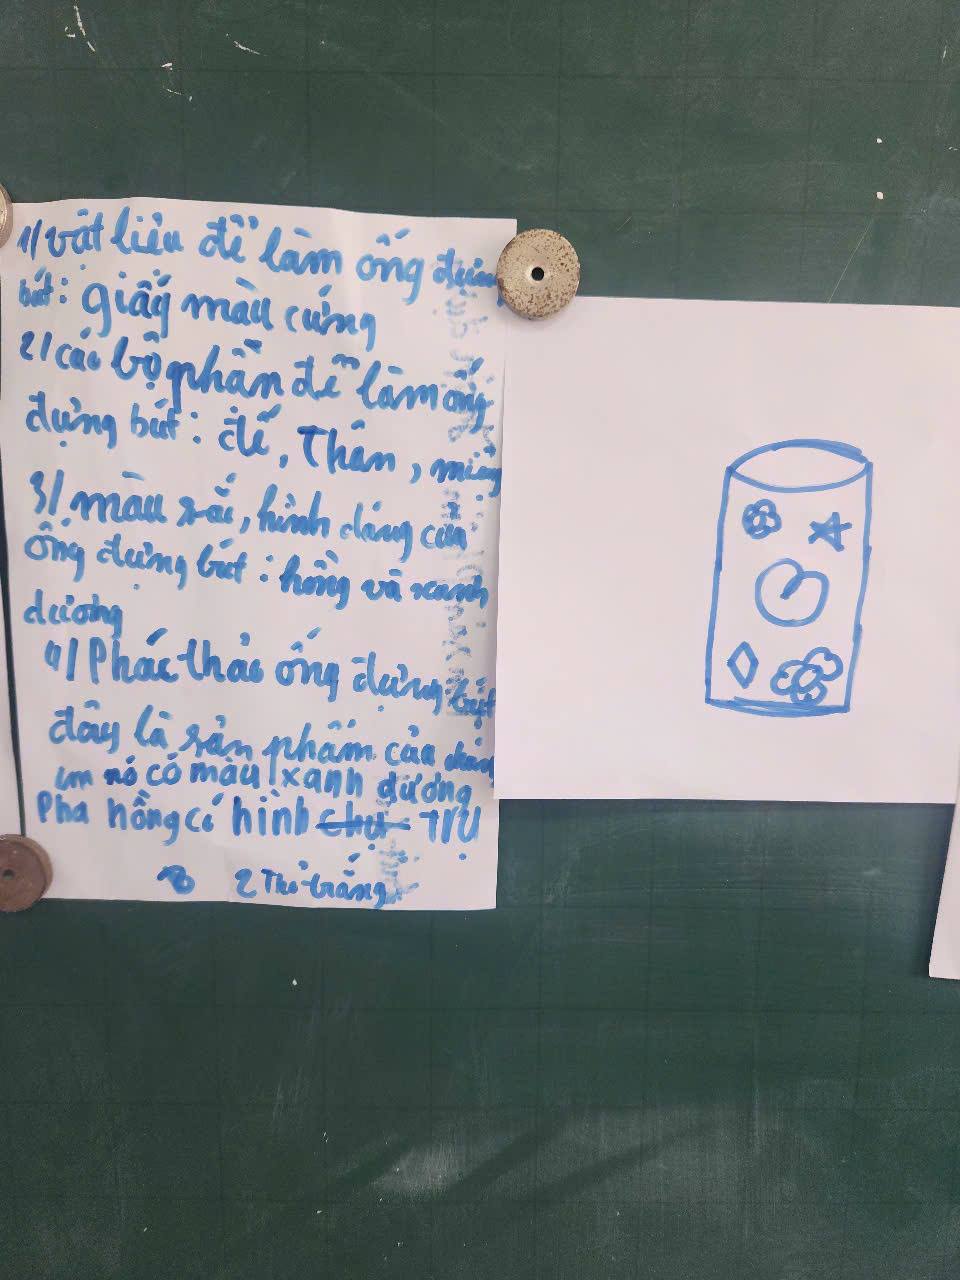 1/ vật liệu để làm ống đựng
bút: giấy màu cứng
2/ các bộ phần để làm ống
đựng bút: đế, Thân, miệng
3/ màu sắc, hình dáng của
ống đựng bút: hồng và xanh
dương
4/ Phác thảo ống đựng bút
đây là sản phẩm của
em nó có màu xanh dương
Pha hồng có hình chữ TRỤ
2 Thỏ trắng